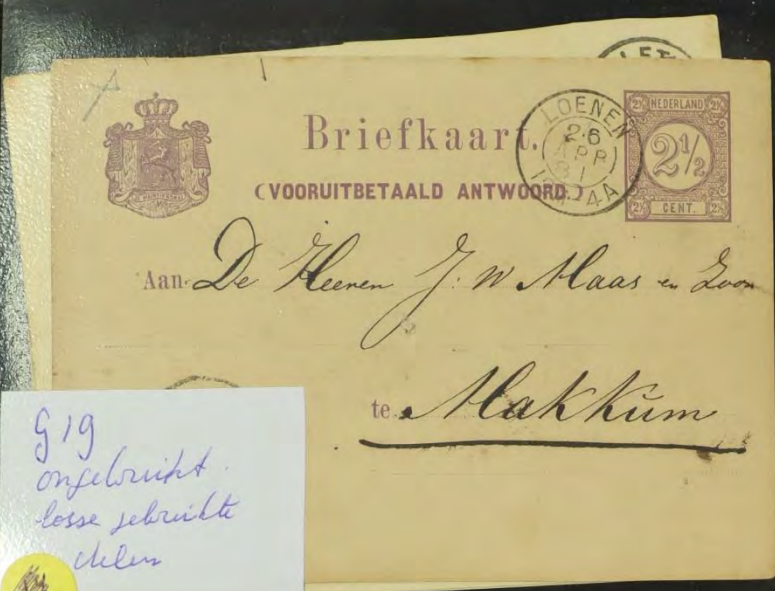 LET
Briefkaart.
(VOORUITBETAALD ANTWOORD.)
LOENEN
26
APR
81
4A
NEDERLAND
2½
2½
2½
CENT.
2½
2½
Aan De Heeren J: W Maas en Zoon
te Makkum
G 19
ongebruikt.
losse gebruikte
delen